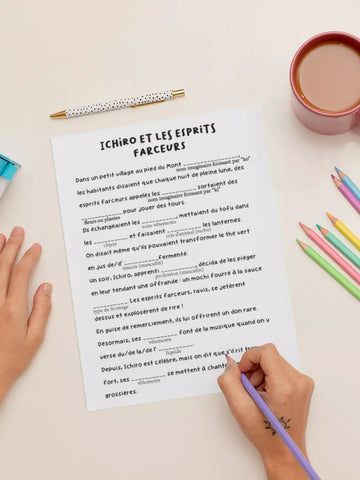 ICHIRO ET LES ESPRITS
FARCEURS
Dans un petit village au pied du Mont __________,
nom imaginaire finissant par "ko"
les habitants disaient que chaque nuit de pleine lune, des
esprits farceurs appelés les __________ sortaient des
nom imaginaire finissant par "ki"
__________ pour jouer des tours.
fleurs ou plantes
Ils échangeaient les __________, mettaient du tofu dans
sous-vêtements
les __________ et faisaient __________ les lanternes.
objets
cris d'animal (verbe)
On disait même qu'ils pouvaient transformer le thé vert
en jus de/d' __________ fermenté.
insecte (masculin)
Un soir, Ichiro, apprenti __________, décida de les piéger
profession (masculin)
en leur tendant une offrande : un mochi fourré à la sauce
__________. Les esprits farceurs, ravis, se jetèrent
type de fromage
dessus et explosèrent de rire !
En guise de remerciement, ils lui offrirent un don rare.
Désormais, ses __________ font de la musique quand on y
vêtements
verse du/de la/de l' __________.
liquide
Depuis, Ichiro est célèbre, mais on dit que s'il rit
fort, ses __________ se mettent à
vêtements
grossières.